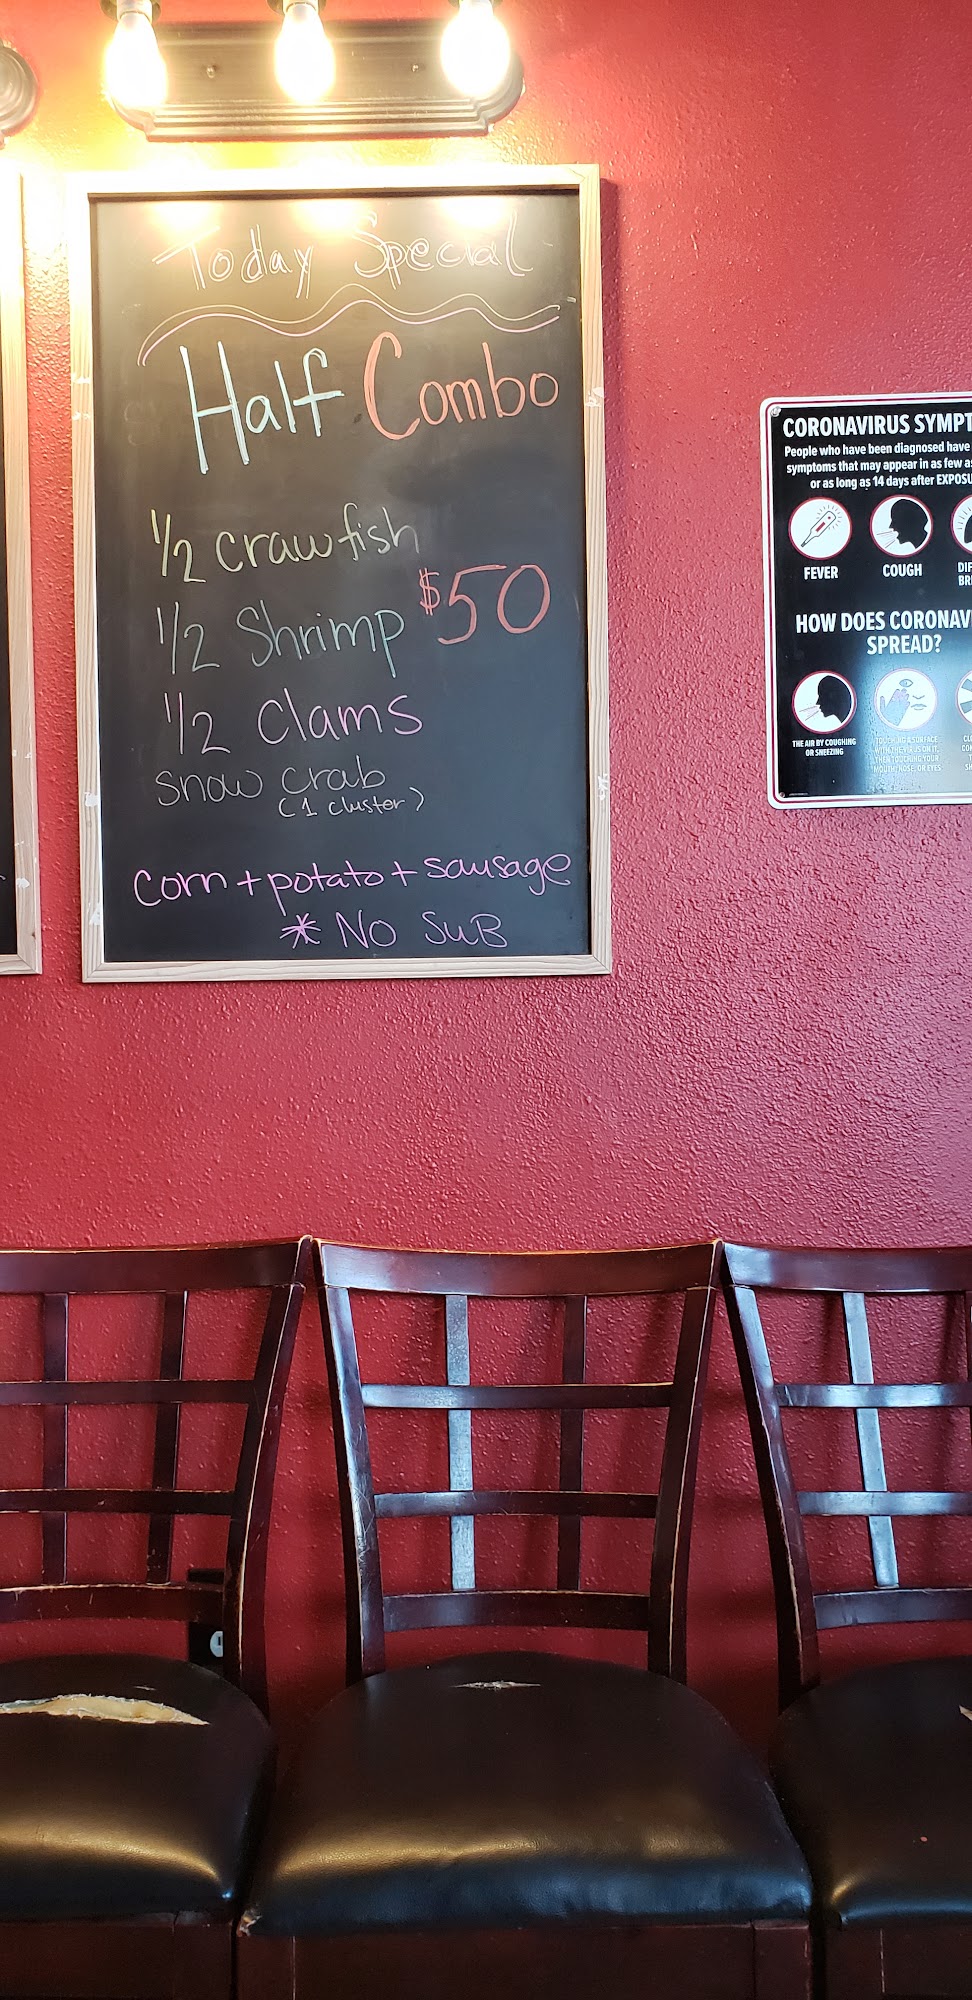 Today Special
Half Combo
1/2 crawfish
1/2 Shrimp $50
1/2 Clams
snow crab
(1 cluster)
corn + potato + sausage
* NO SUB
CORONAVIRUS SYMPT
People who have been diagnosed have
symptoms that may appear in as few as
or as long as 14 days after EXPOSU
FEVER
COUGH
DIF
BRE
HOW DOES CORONAVI
SPREAD?
THE AIR BY COUGHING
OR SNEEZING
TOUCHING A SURFACE
WITH THE VIRUS ON IT,
THEN TOUCHING YOUR
MOUTH, NOSE, OR EYES